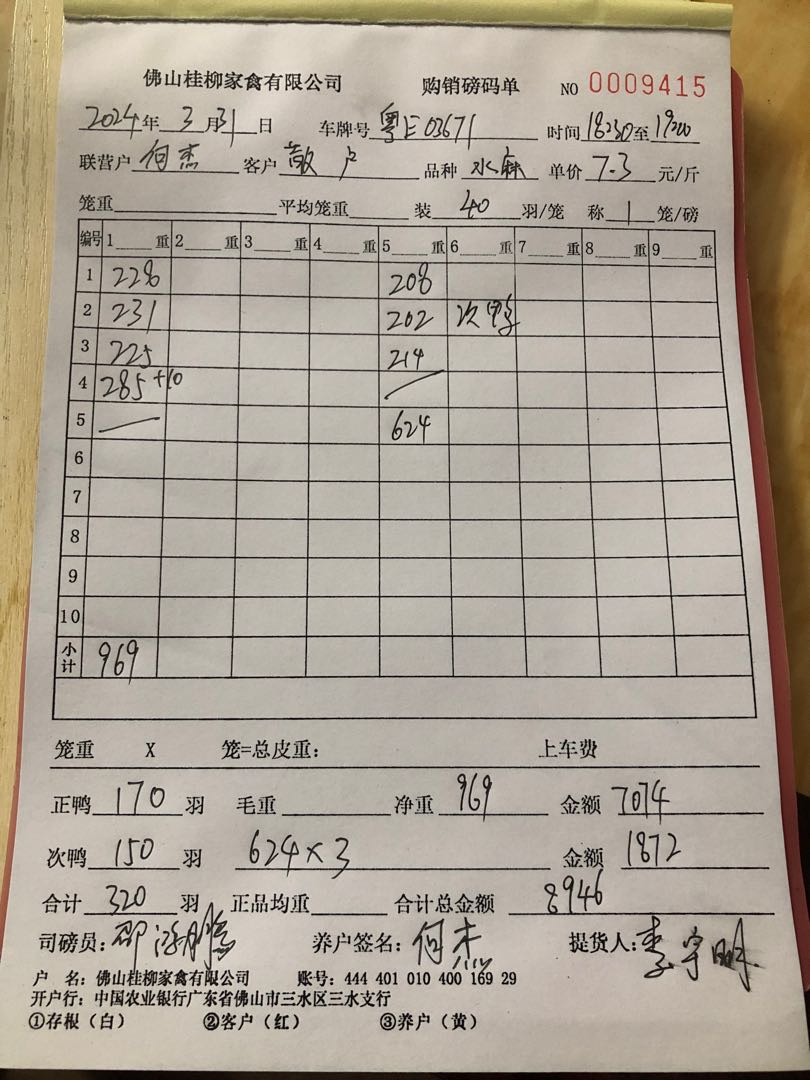 佛山桂柳家禽有限公司 购销磅码单 NO 0009415
2024年 3月31日 车牌号 粤E03671 时间 18:30至19:00
联营户 何杰 客户 散户 品种 水麻 单价 7.3 元/斤
笼重 平均笼重 装 40 羽/笼 称 1 笼/磅
编号 1 重 2 重 3 重 4 重 5 重 6 重 7 重 8 重 9 重
1 228 208
2 231 202 次鸭
3 225 214
4 285+10
5 624
6
7
8
9
10
小计 969
笼重 X 笼=总皮重: 上车费
正鸭 170 羽 毛重 净重 969 金额 7074
次鸭 150 羽 624×3 金额 1872
合计 320 羽 正品均重 合计总金额 8946
司磅员: 邵 养户签名: 何杰 提货人: 李宇明
户 名: 佛山桂柳家禽有限公司 账号: 444 401 010 400 169 29
开户行: 中国农业银行广东省佛山市三水区三水支行
①存根（白） ②客户（红） ③养户（黄）